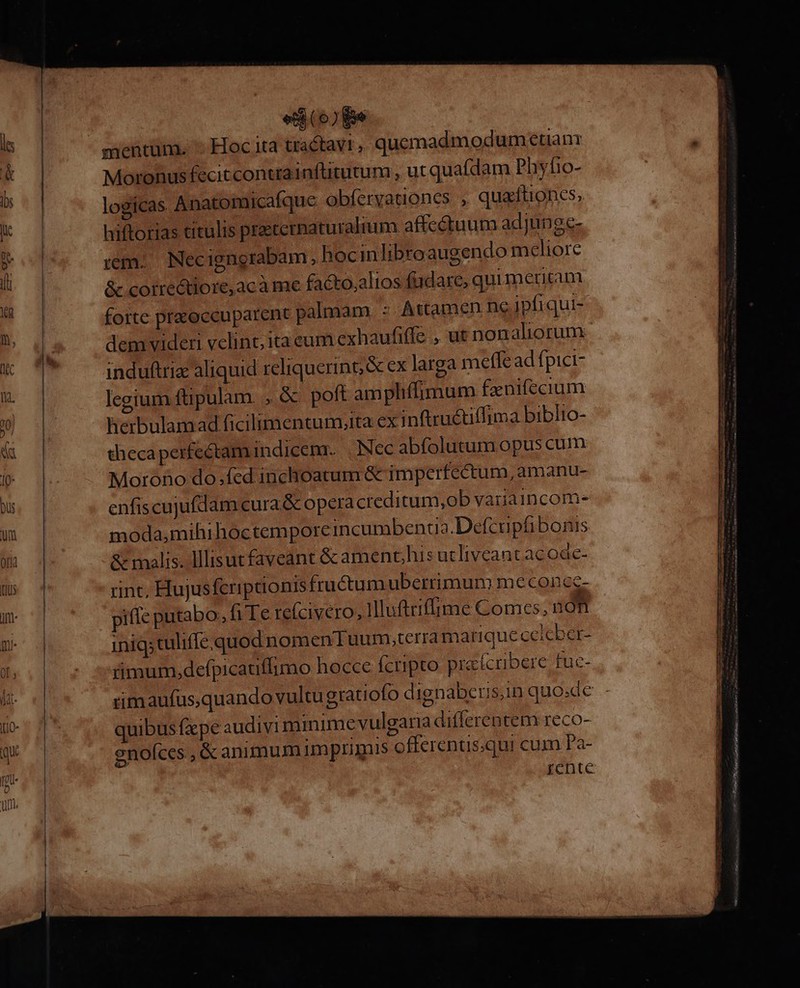 (o)
mentum. Hoc ita tractavi, quemadmodum etiam
Moronus fecit contra inſtitutum, ut quaſdam Phyſio-
logicas Anatomicaſque obſervationes, quæſtiones,
hiſtorias titulis præternaturalium affectuum adjunge-
rem. Nec ignorabam, hoc in libro augendo meliore
& correctiore, ac à me facto, alios ſudare, qui meritam
forte præoccuparent palmam: Attamen ne ipſi qui-
dem videri velint, ita eum exhauſiſſe, ut non aliorum
induſtriæ aliquid reliquerint, & ex larga meſſe ad ſpici-
legium ſtipulam, & poſt ampliſſimum fæniſecium
herbulam ad ſicilimentum, ita ex inſtructiſſima biblio-
theca perfectam indicem. Nec abſolutum opus cum
Morono do, ſed inchoatum & imperfectum, amanu-
enſis cujuſdam cura & opera creditum, ob varia incom-
moda, mihi hoc tempore incumbentia. Deſcripſi bonis
& malis. Illis ut faveant & ament, his ut liveant ac ode-
rint. Hujus ſcriptionis fructum uberrimum me conce-
piſſe putabo, ſi Te reſcivero, Illuſtriſſime Comes, non
iniq; tuliſſe, quod nomen Tuum, terra marique celeber-
rimum, deſpicatiſſimo hocce ſcripto præſcribere fue-
rim auſus, quando vultu gratioſo dignaberis, in quo, de
quibus ſæpe audivi minime vulgaria differentem reco-
gnoſces, & animum imprimis offerentis, qui cum Pa-
rente
les
&